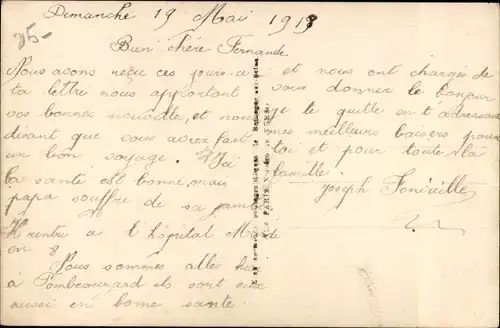 Dimanche 19 Mai 1918
25-
Bien chère Fernande
Nous avons reçu ces jours-ci
ta lettre nous apportant
vos bonnes nouvelle, et nous
disant que vous aviez fait
un bon voyage. Ici
la santé est bonne, mais
papa souffre de sa jambe
Il rentre a l'hôpital
en 8
Nous sommes aller hier
à Tombeauzard ils sont eux
aussi en bonne santé
et nous ont chargés de
vous donner le bonjour
Je te quitte en t'adressant
mes meilleurs baisers pour
toi et pour toute la
famille.
Joseph